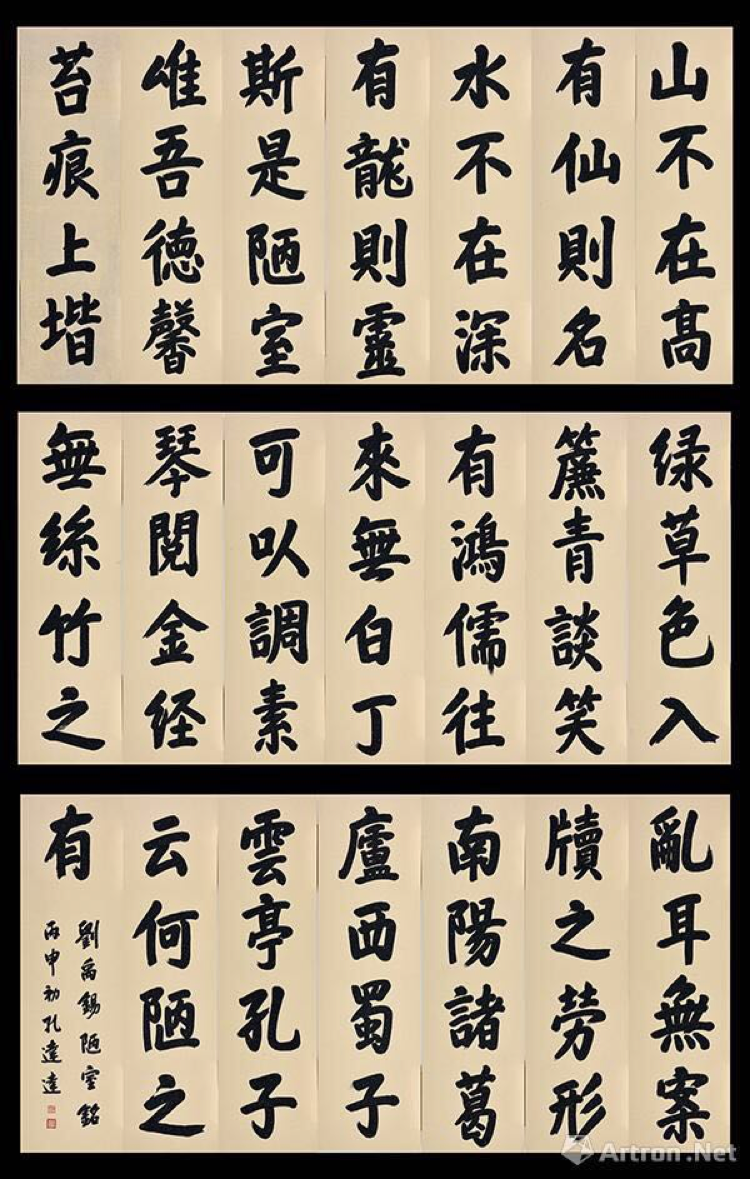 山不在高
有仙則名
水不在深
有龍則靈
斯是陋室
唯吾德馨
苔痕上堦
绿草色入
簾青談笑
有鴻儒往
來無白丁
可以調素
琴閱金经
無絲竹之
亂耳無案
牘之勞形
南陽諸葛
廬西蜀子
雲亭孔子
云何陋之
有
劉禹錫陋室銘
丙申初孔達達
Artron.Net